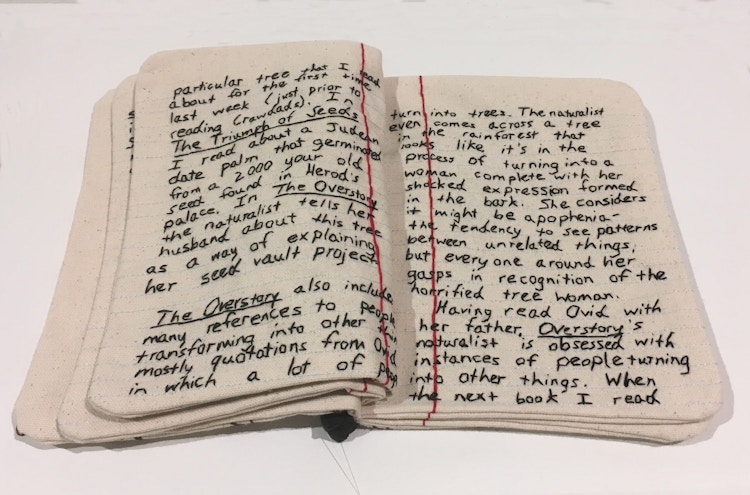 particular tree that I read
about for the first time
last week (just prior to
reading Crawdads). In
The Triumph of Seeds
I read about a Judean
date palm that germinated
from a 2000 your old
seed found in Herod's
palace. In The Overstory
the naturalist tells her
husband about this tree
as a way of explaining
her seed vault project.
The Overstory also include
many references to people
transforming into other
mostly quotations from Ovid
in which a lot of
turn into trees. The naturalist
even comes across a tree
in the rainforest that
looks like it's in the
process of turning into a
woman complete with her
shocked expression formed
in the bark. She considers
it might be apophenia-
the tendency to see patterns
between unrelated things,
but everyone around her
gasps in recognition of the
horrified tree woman.
Having read Ovid with
her father, Overstory's
naturalist is obsessed with
instances of people turning
into other things. When
the next book I read